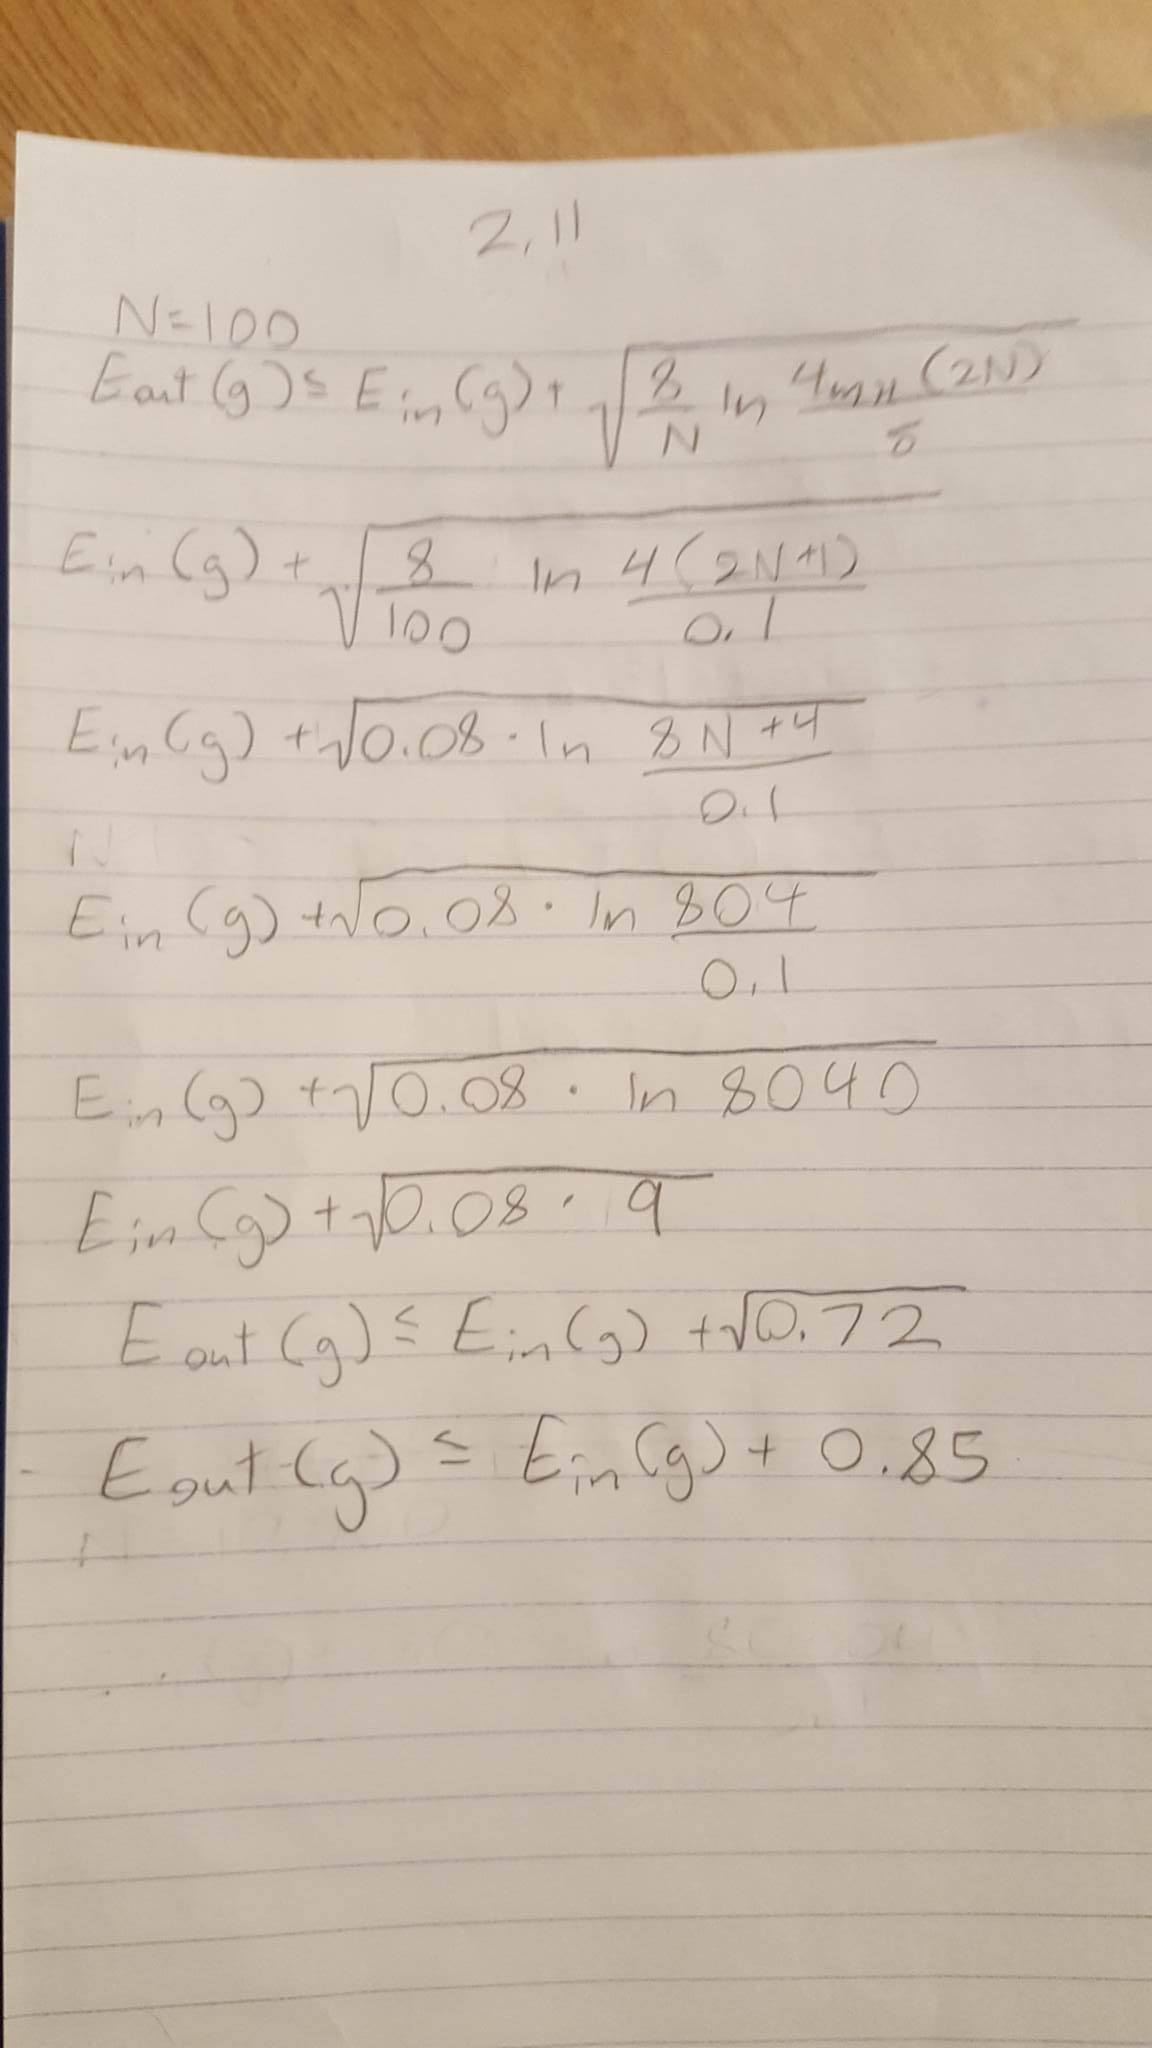 2.11
N=100
Eout(g) ≤ Ein(g) + √(8/N ln 4mH(2N)/δ)
Ein(g) + √(8/100 ln 4(2N+1)/0.1)
Ein(g) + √(0.08 · ln 8N+4/0.1)
N
Ein(g) + √(0.08 · ln 804/0.1)
Ein(g) + √(0.08 · ln 8040)
Ein(g) + √(0.08 · 9)
Eout(g) ≤ Ein(g) + √0.72
Eout(g) ≤ Ein(g) + 0.85